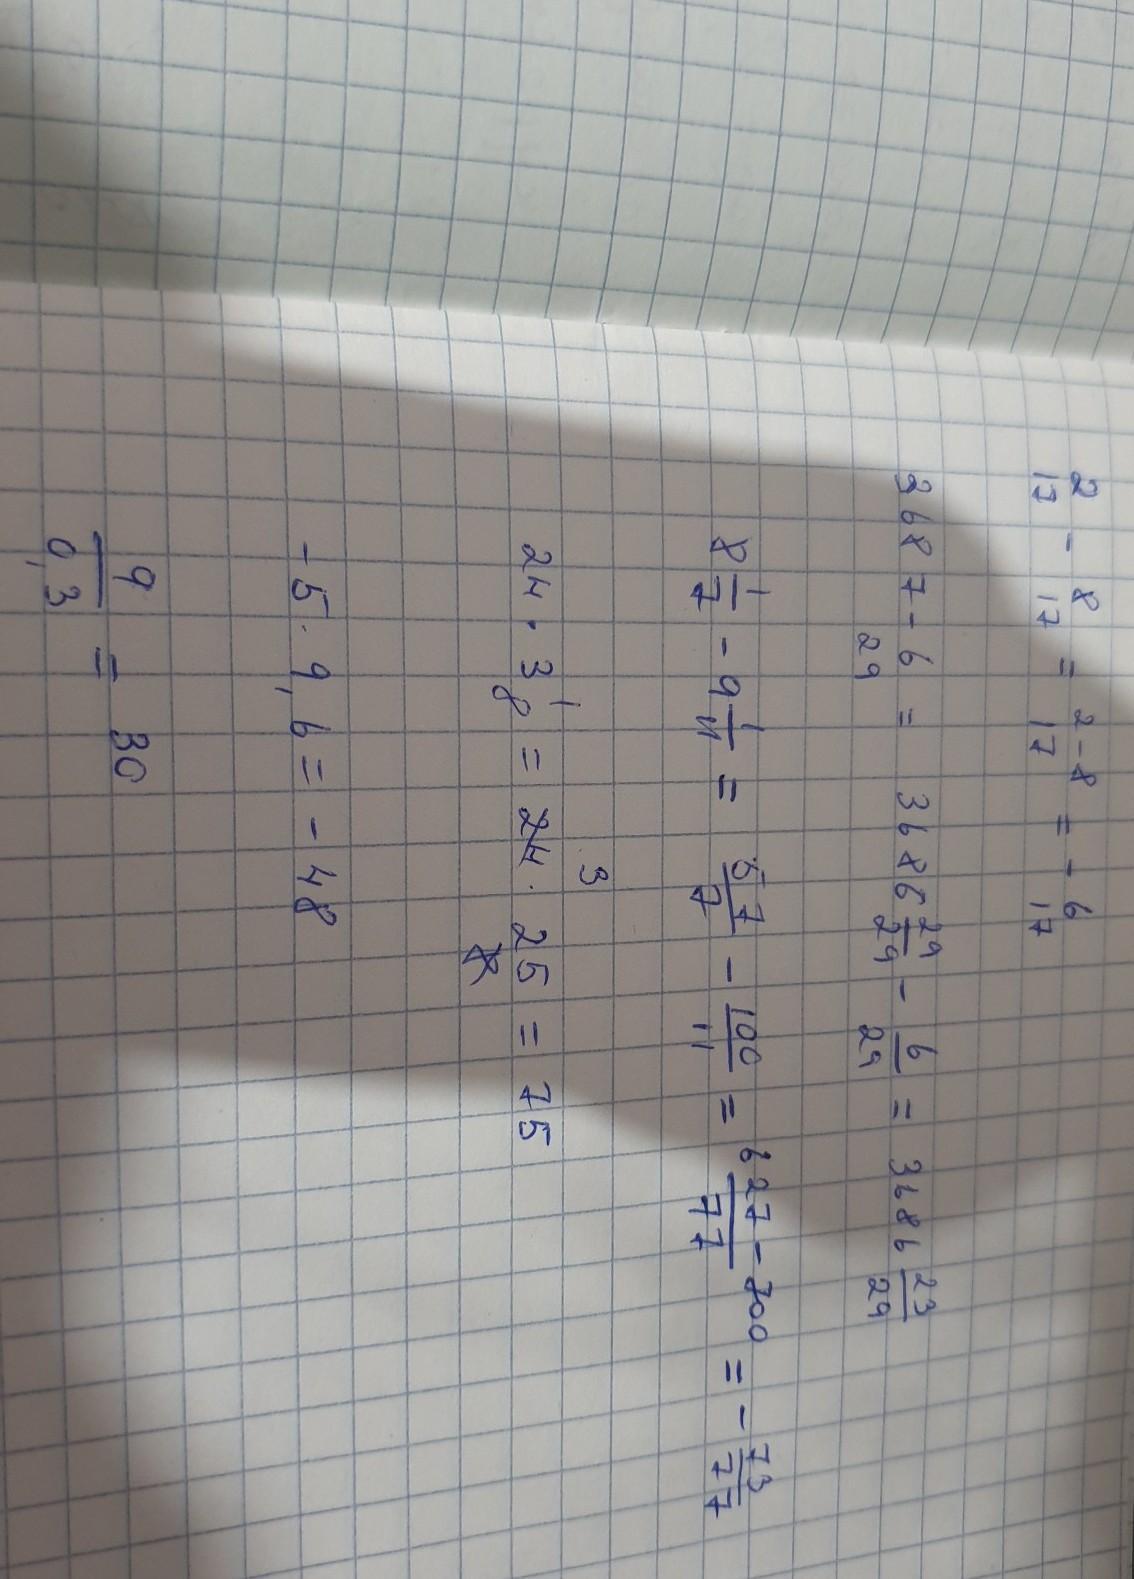 2/17 - 8/17 = 2-8/17 = - 6/17
3687 - 6/29 = 3686 29/29 - 6/29 = 3686 23/29
8 1/7 - 9 1/11 = 57/7 - 100/11 = 627-700/77 = - 73/77
24 · 3 1/8 = 24 · 25/8 = 75
3
-5 · 9,6 = -48
9/0,3 = 30